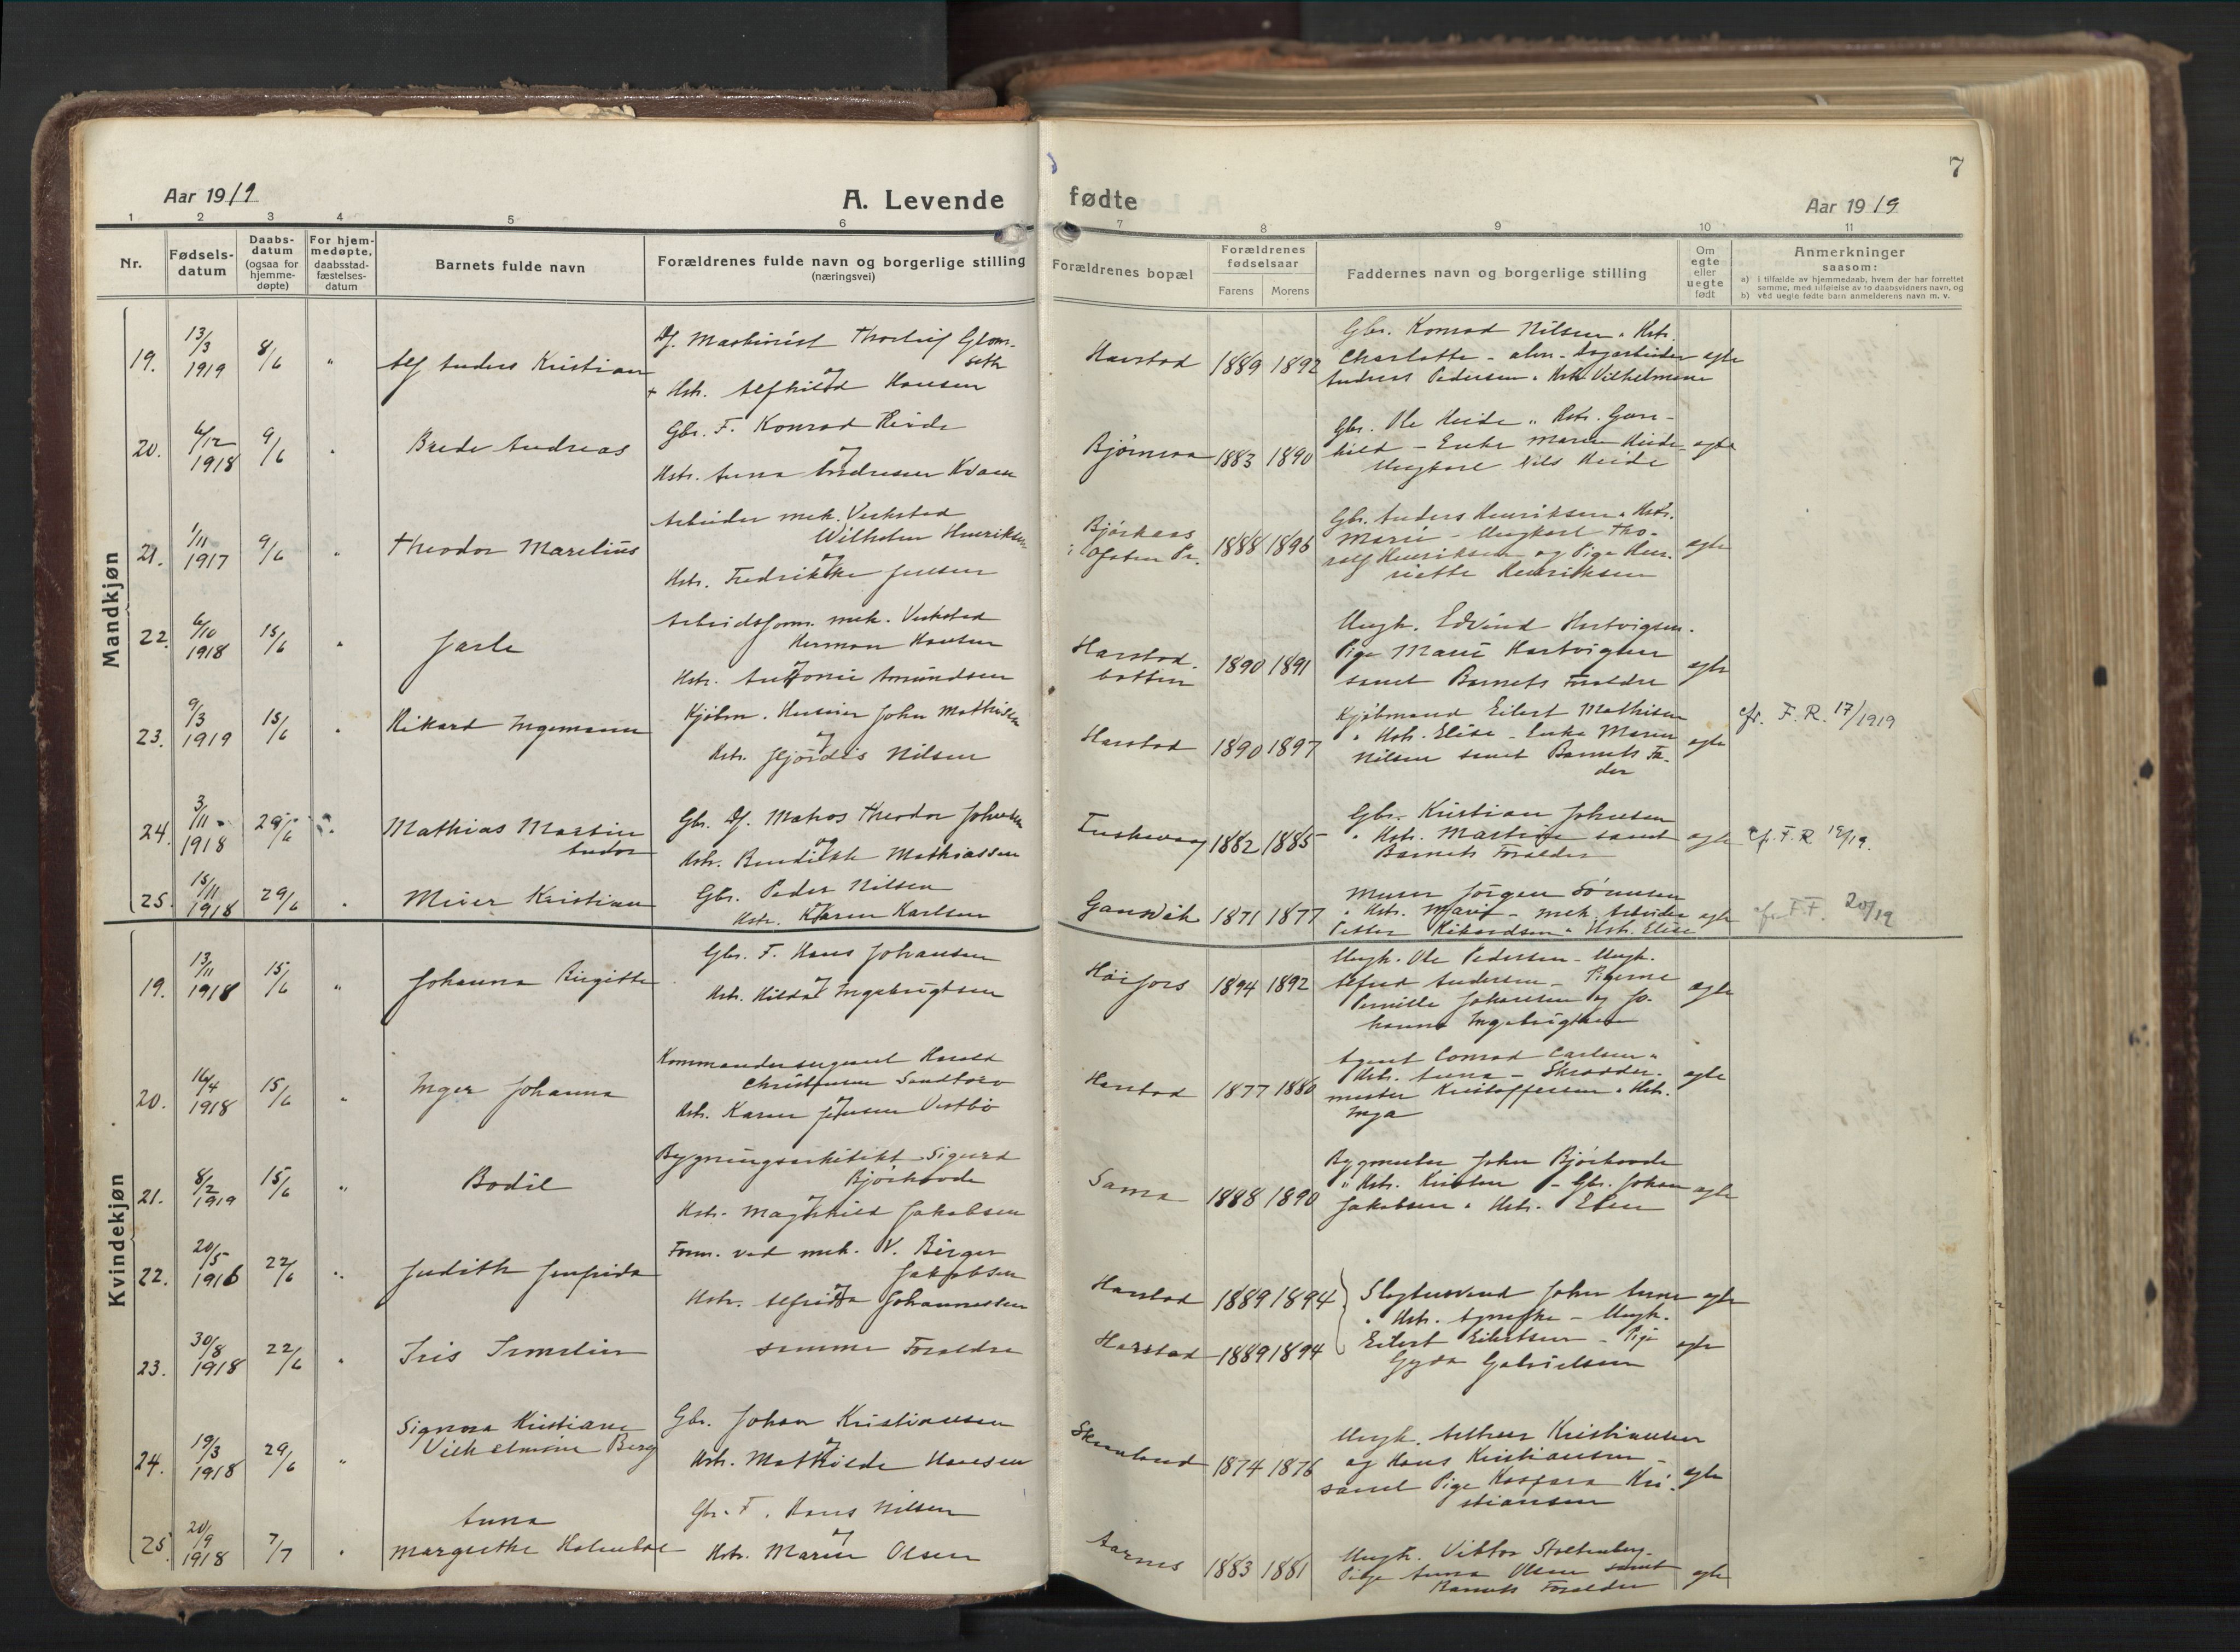 7
Aar 1919
A. Levende
fødte
Aar 1919
1 2 3 4 5 6 7 8 9 10 11
Nr.
Fødsels-
datum
Daabs-
datum
(ogsaa for
hjemme-
døpte)
For hjem-
medøpte,
daabsstad-
fæstelses-
datum
Barnets fulde navn
Forældrenes fulde navn og borgerlige stilling
(næringsvei)
Forældrenes bopæl
Forældrenes
fødselsaar
Farens Morens
Faddernes navn og borgerlige stilling
Om
egte
eller
uegte
født
Anmerkninger
saasom:
a) i tilfælde av hjemmedaab, hvem der har forrettet
samme, med tilføielse av to daabsvidners navn, og
b) ved uegte fødte barn anmelderens navn m. v.
Mandkjøn
19. 13/3 1919 8/6 " Alf Anders Kristian
Df. Maskinist Thorleif Glom-
seth
og
Hstr. Alfhild Hansen
Harstad 1889 1892
Gbr. Konrad Nilsen " Hstr.
Charlotte - Dagarbeider
Anders Pedersen " Hstr. Vilhelmine
egte
20. 6/12 1918 9/6 " Brede Andreas
Gbr. F. Konrad Heide
og
Hstr. Anna Andresen Kvam
Bjørnraa 1883 1890
Gbr. Ole Heide " Hstr. Gun-
hild - Enke Maren Heide -
Ungkarl Nils Heide
egte
21. 1/11 1917 9/6 " Theodor Marelius
Arbeider mek. Verksted
Wilhelm Henriksen
og
Hstr. Fredrikke Jensen
Bjørkaas
i Ofoten Pr. 1888 1896
Gbr. Anders Henriksen " Hstr.
Marie - Ungkarl Tho-
ralf Henriksen og Pige Hen-
riette Henriksen
egte
22. 6/10 1918 15/6 " Jarle
Arbeidsform. mek. Verksted
Herman Hansen
og
Hstr. Antonie Amundsen
Harstad-
botten 1890 1891
Ungk. Edvind Hartvigsen.
Pige Marie Hartvigsen
samt Barnets Forældre
egte
23. 9/3 1919 15/6 " Rikard Ingemann
Kjøbm. John Mathisen
og
Hstr. Hjørdis Nilsen
Harstad 1890 1897
Kjøbmand Eilert Mathisen
" Hstr. Elise - Enke Maren
Nilsen samt Barnets Fa-
der
egte
cfr. F. R. 17/1919
24. 3/11 1918 29/6 " Mathias Martin
Andor
Gbr. Df. Matros Theodor Johnsen
og
Hstr. Bendikte Mathiassen
1882 1885
Gbr. Kristian Johnsen
" Hstr. samt
Barnets Forældre
egte
cf. F. R 19/19.
25. 15/11 1918 29/6 " Meier Kristian
Gbr. Peder Nilsen
og
Hstr. Karen Karlsen
Gansvik 1871 1877
Murer Jørgen Sørensen
" Hstr. Marit - mek. Arbeider
Petter Rikardsen " Hstr. Elise
egte
20/19
Kvindekjøn
19. 13/11 1918 15/6 " Johanna Birgitte
Gbr. F. Hans Johansen
og
Hstr. Hilda Ingebrigtsen
Høifors 1894 1892
Ungk. Ole Pedersen - Ungk.
Alfred Andersen - Pigerne
Pernille Johansen og Jo-
hanna Ingebrigtsen
egte
20. 16/4 1918 15/6 " Inger Johanna
Kommandersergeant Harald
Christensen Sandtorv
og
Hstr. Karen Jensen Vestbø
Harstad 1877 1880
Agent Conrad Carlsen "
Hstr. Anna - Skrædder-
mester Kristoffersen " Hstr.
Inga
egte
21. 8/2 1919 15/6 " Bodil
Bygningsarkitekt Sigurd
Bjørhovde
og
Hstr. Magnhild Jakobsen
Sama 1888 1890
Bygmester John Bjørhovde
" Hstr. Kirsten - Gbr. Johan
Jakobsen " Hstr. Elen
egte
22. 20/5 1916 22/6 " Judith Jenfrida
Form. ved mek. V. Birger
Jakobsen
og
Hstr. Alfrida Johannessen
Harstad 1889 1894
Slagtersvend John Arne
" Hstr. - Ungk.
Eilert Eilertsen - Pige
Gyda Gabrielsen
egte
23. 30/8 1918 22/6 " Iris Irmelin
samme Forældre
Harstad 1889 1894
egte
24. 19/3 1918 29/6 " Signora Kristiane
Vilhelmine Berg
Gbr. Johan Kristiansen
og
Hstr. Mathilde Hansen
Skaanland 1874 1876
Ungk. Arthur Kristiansen
og Hans Kristiansen -
samt Pige Kaspara Kri-
stiansen
egte
25. 20/9 1918 7/7 " Anna
Margrethe Holmboe
Gbr. F. Hans Nilsen
og
Hstr. Maren Olsen
Aarnes 1883 1881
Ungk. Viktor Stoltenberg.
Pige Anna Olsen samt
Barnets Forældre
egte